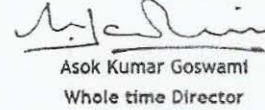 Asok Kumar Goswami
Whole time Director